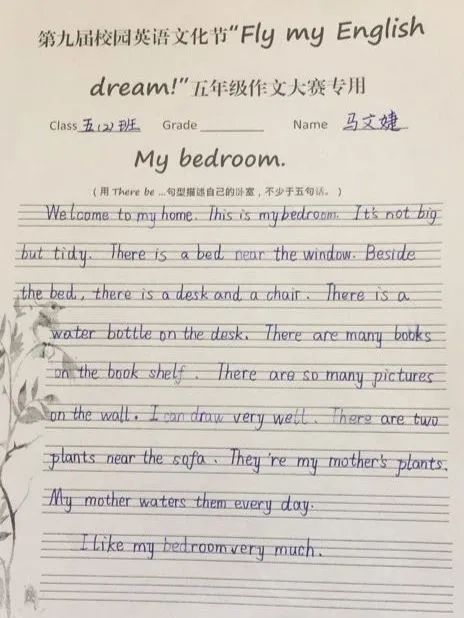 第九届校园英语文化节“Fly my English
dream!”五年级作文大赛专用
Class 五(2)班 Grade Name 马文婕
My bedroom.
(用 There be ...句型描述自己的卧室，不少于五句话。)
Welcome to my home. This is my bedroom. It's not big
but tidy. There is a bed near the window. Beside
the bed, there is a desk and a chair. There is a
water bottle on the desk. There are many books
on the book shelf. There are so many pictures
on the wall. I can draw very well. There are two
plants near the sofa. They're my mother's plants.
My mother waters them every day.
I like my bedroom very much.